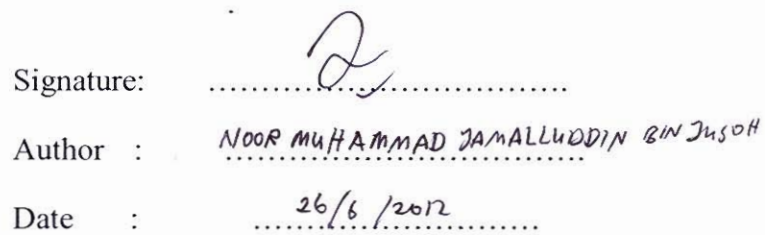 Signature:
Author : NOOR MUHAMMAD JAMALLUDDIN BIN JUSOH
Date : 26/6/2012